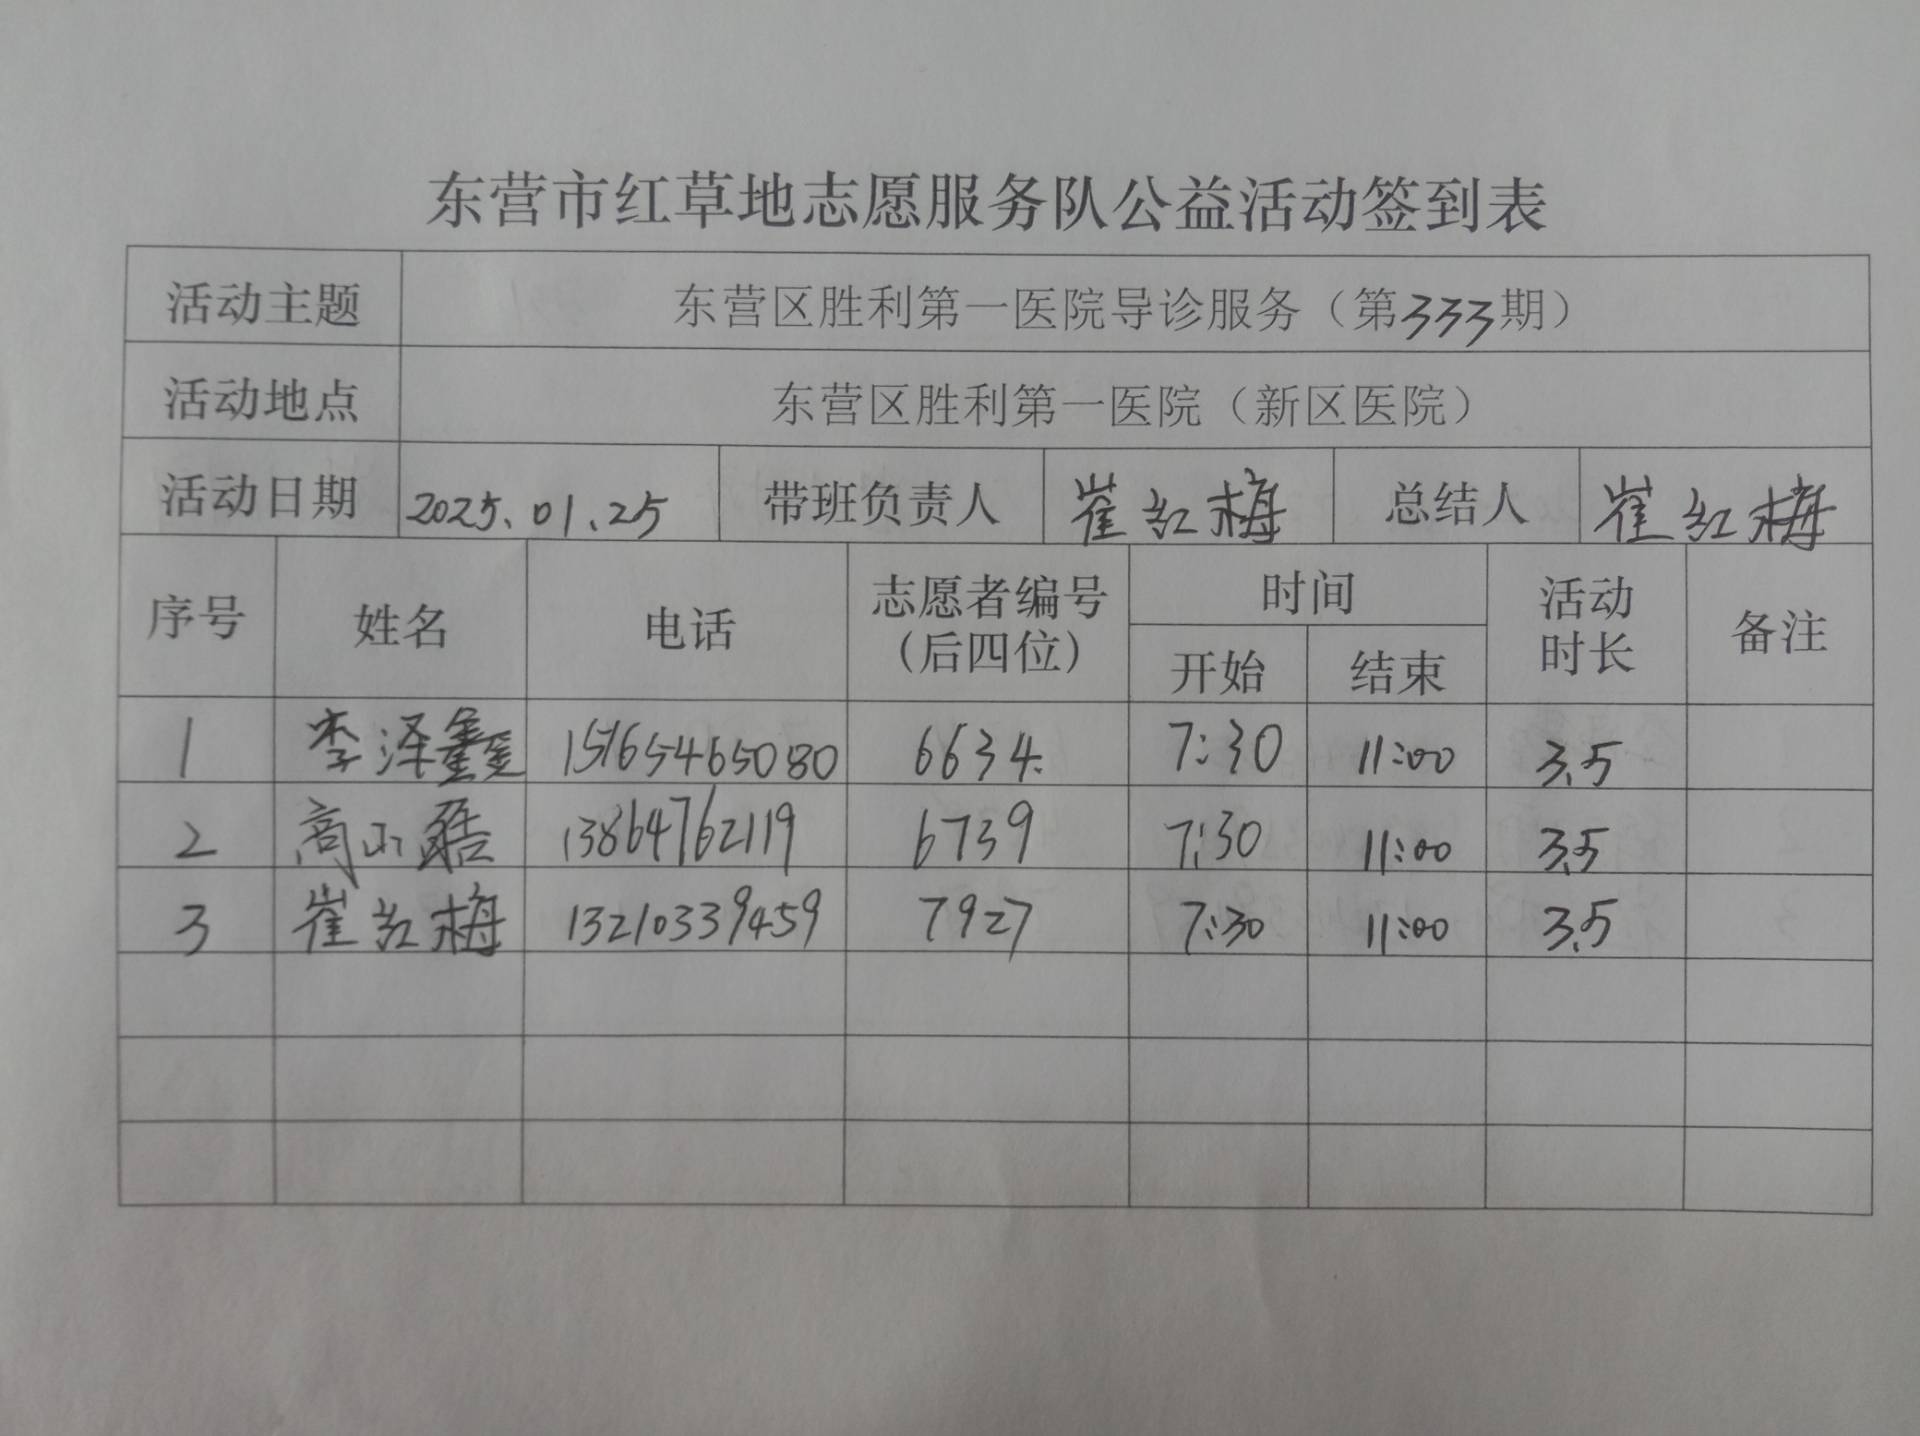 东营市红草地志愿服务队公益活动签到表
活动主题 东营区胜利第一医院导诊服务（第333期）
活动地点 东营区胜利第一医院（新区医院）
活动日期 2025.01.25 带班负责人 崔红梅 总结人 崔红梅
序号 姓名 电话 志愿者编号（后四位） 时间 开始 结束 活动时长 备注
1 李泽鑫 15165465080 6634 7:30 11:00 3.5
2 商 13864762119 6739 7:30 11:00 3.5
3 崔红梅 13210339459 7927 7:30 11:00 3.5